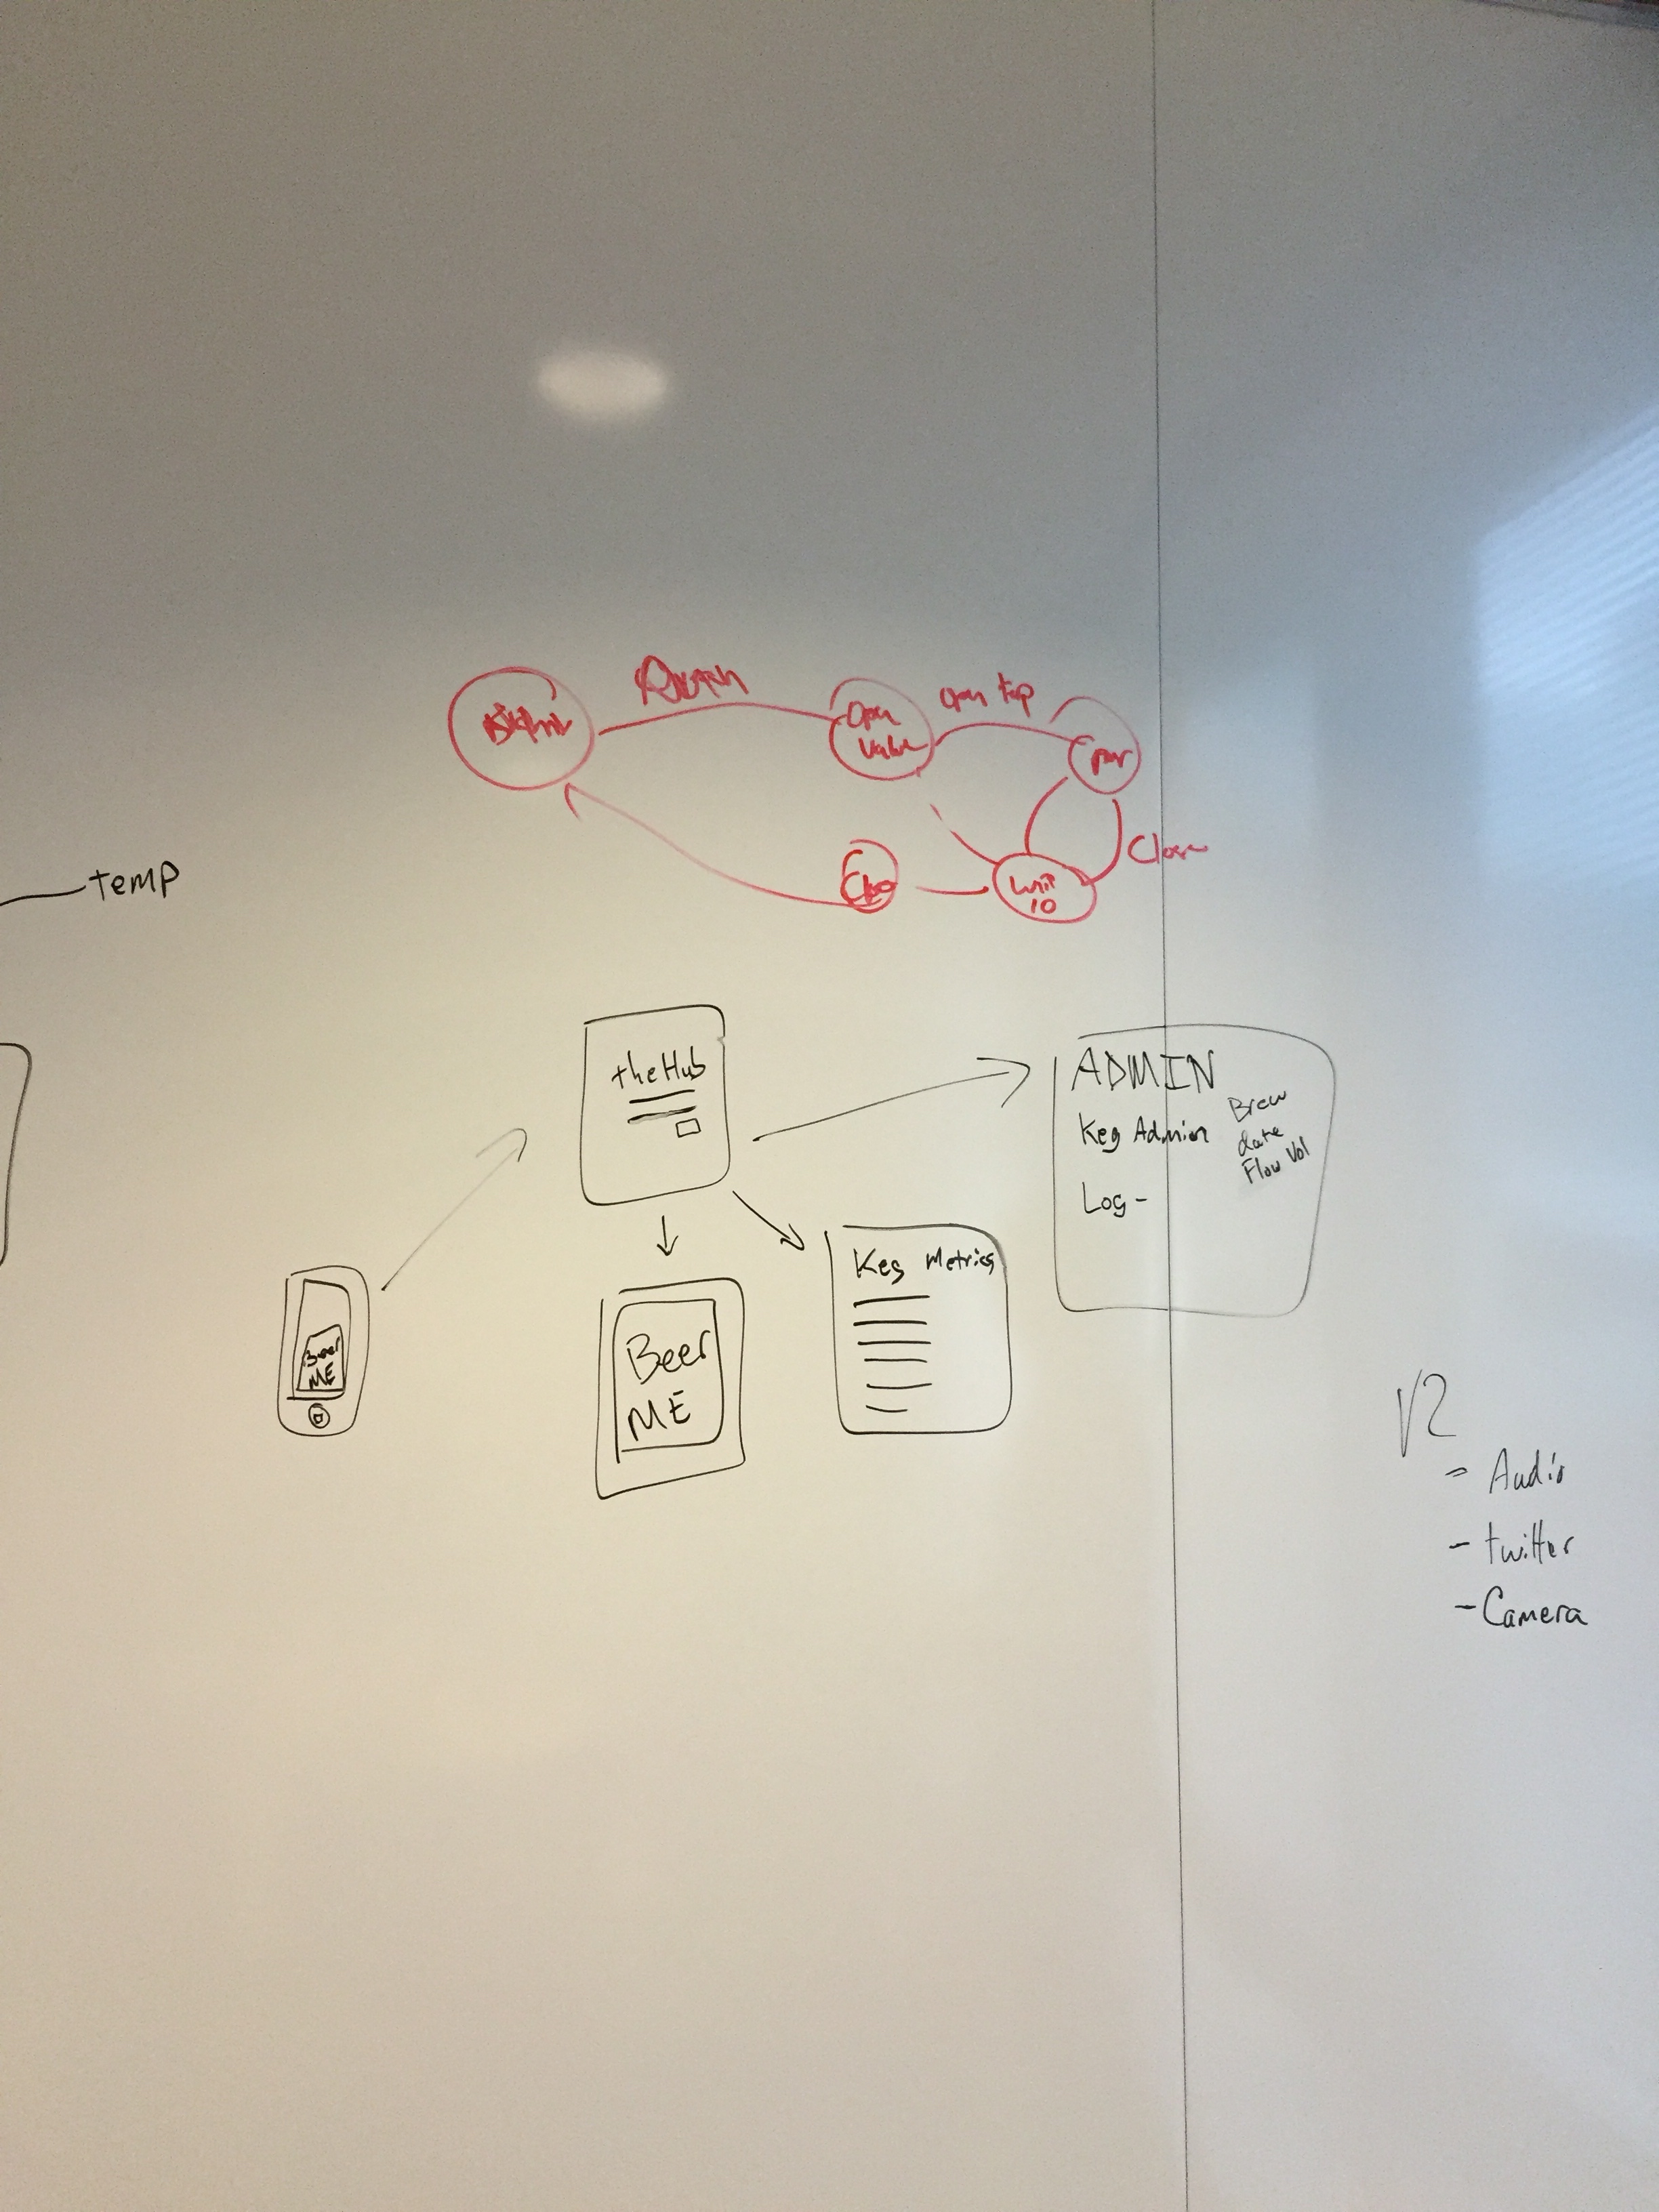 Open
Valve
open tap
pour
Close
Wait
10
temp
theHub
ADMIN
Keg Admin
Brew
date
Flow Vol
Log -
Keg Metrics
Beer
ME
Beer
ME
V2
- Audio
- twitter
- Camera